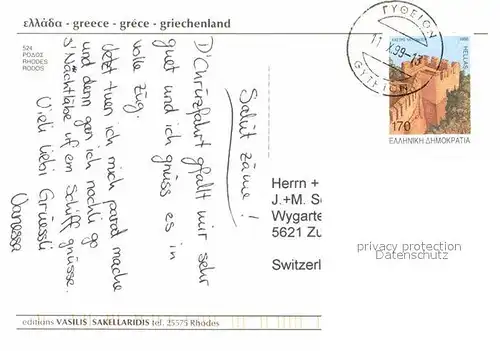 ελλάδα - greece - gréce - griechenland
524
ΡΟΔΟΣ
RHODES
RODOS
Salut zäme!
D'Chrüzfahrt gfallt mir sehr
guet und ich grüss es in
volle Züg.
Jetzt tuen ich mich parat mache
und denn gan ich nochli go
s'Nachtläbe uf em Schiff grüsse.
Vieli liebi Grüessli
Vanessa
ΓΥΘΕΙΟΝ
11 X 99-13
GYTEION
HELLAS
170
ΕΛΛΗΝΙΚΗ ΔΗΜΟΚΡΑΤΙΑ
Herrn +
J.+M. S
Wygarte
5621 Zu
Switzerl
privacy protection
Datenschutz
editions VASILIS SAKELLARIDIS tel. 25575 Rhodes